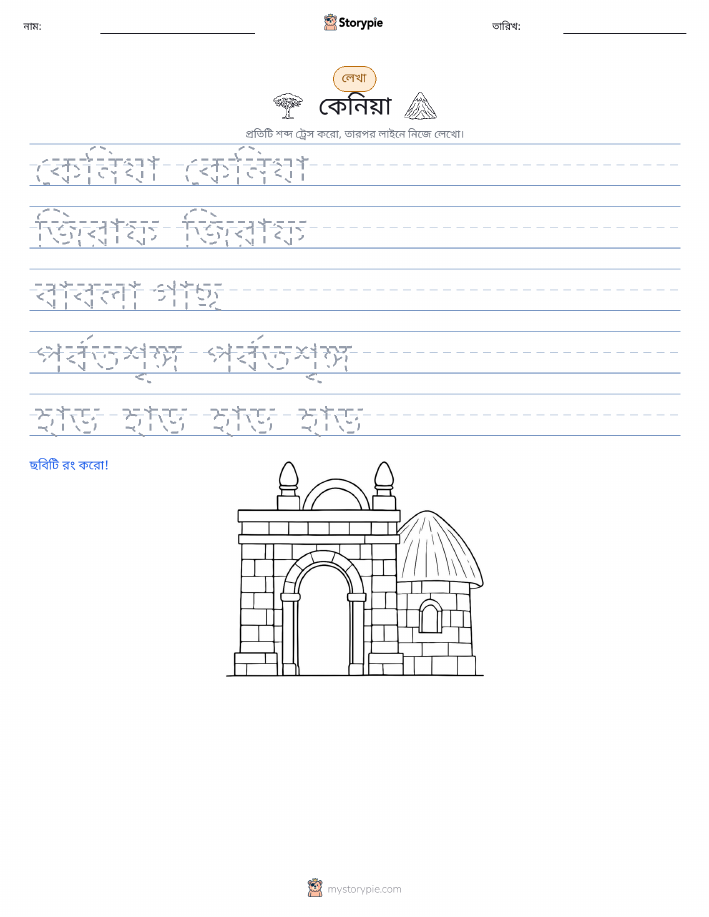 নাম:
Storypie
তারিখ:
লেখা
কেনিয়া
প্রতিটি শব্দ ট্রেস করো, তারপর লাইনে নিজে লেখো।
কেনিয়া কেনিয়া
জিরাফ জিরাফ
বাবলা গাছ
পর্বতশৃঙ্গ পর্বতশৃঙ্গ
হাড হাড হাড হাড
ছবিটি রং করো!
mystorypie.com